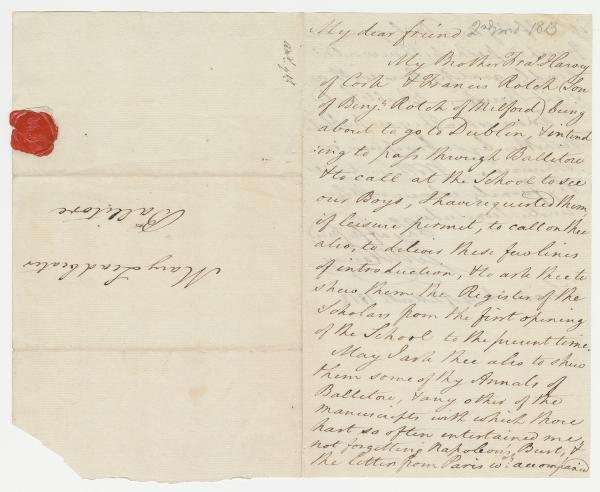 My dear friend 2nd mo 1813
My Brother Fras. Harvey
of Cork & Francis Rotch (Son
of Benjn. Rotch of Milford) being
about to go to Dublin, & intend
:ing to pass through Ballitore
& to call at the School to see
our Boys, I have requested them
if leisure permit, to call on thee
also, to deliver these few lines
of introduction, & to ask thee to
shew them the Register of the
Scholars from the first opening
of the School to the present time.
May I ask thee also to shew
them some of thy Annals of
Ballitore, & any other of the
manuscripts with which thou
hast so often entertained me,
not forgetting Napoleon's Bust, &
the letter from Paris wch. accompanied
Mary Leadbeater
Ballitore